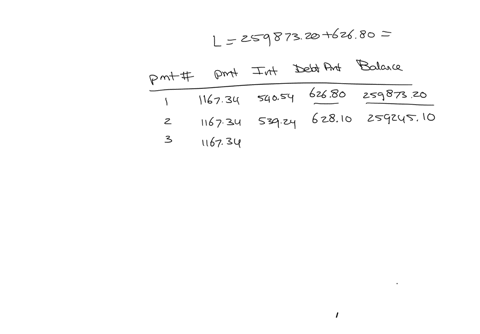 L = 259873.20 + 626.80 =
pmt # pmt Int Debt Pmt Balance
1 1167.34 540.54 626.80 259873.20
2 1167.34 539.24 628.10 259245.10
3 1167.34